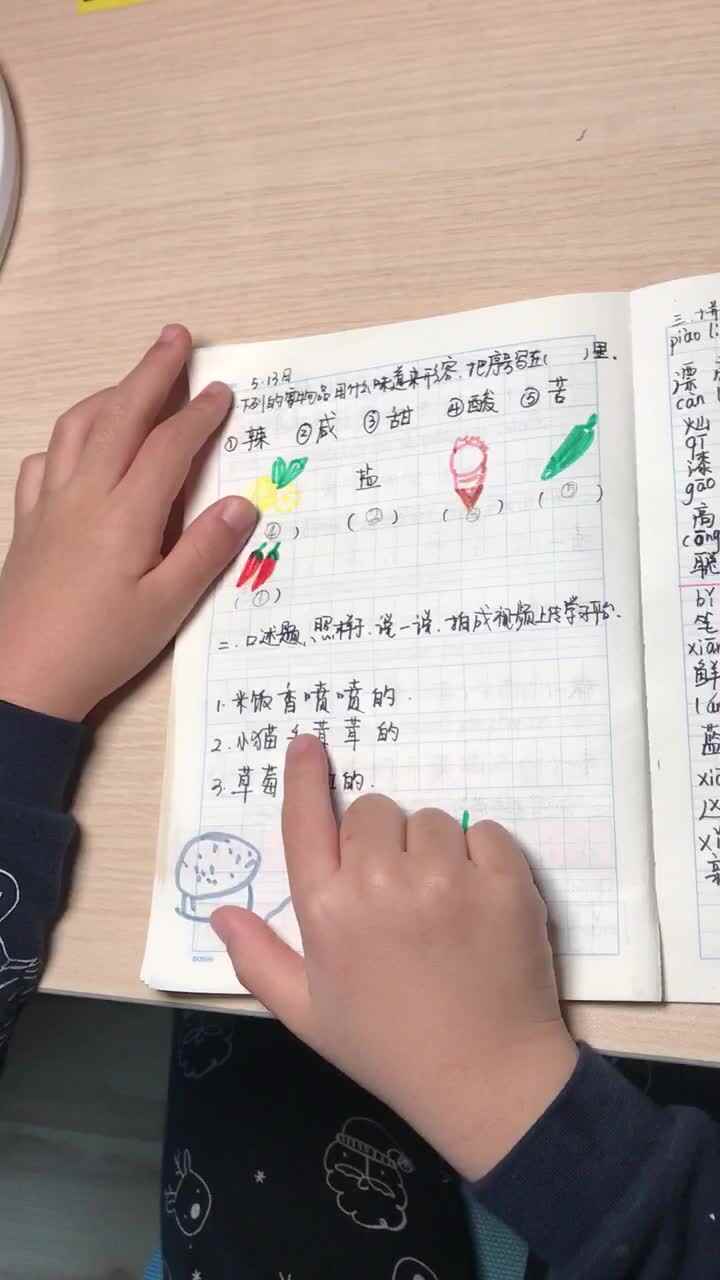 5.13日
下列的事物品用什么味道来形容.把序号写在( )里.
①辣 ②咸 ③甜 ④酸 ⑤苦
盐
④) (②) ( ) (⑤)
(①)
二.口述题、照样子.说一说.拍成视频上传学习平台.
1.米饭香喷喷的.
2.小猫 茸茸的
3.草莓 的.
三.
piào li
漂
càn l
灿
qī
漆
gāo
高
(cōng
聪
bǐ
笔
xiān
鲜
lan
蓝
xi
xi